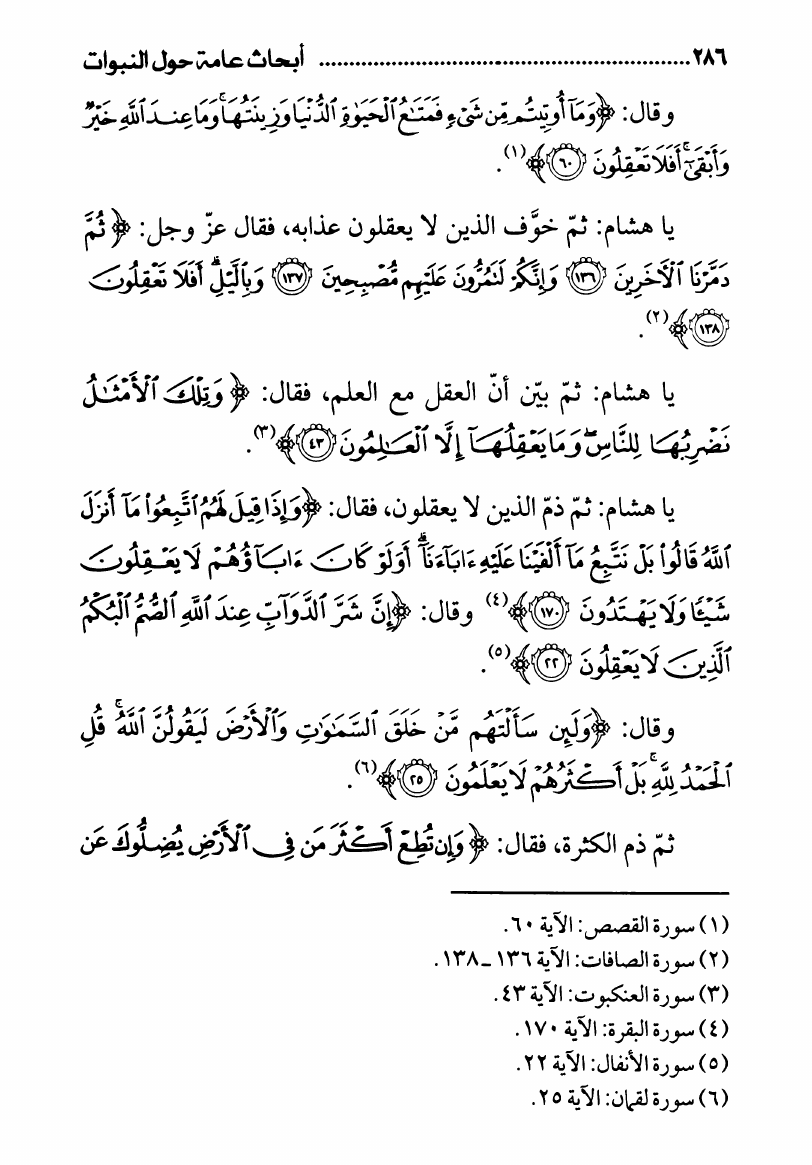 ٢٨٦ ........................................................ أبحاث عامة حول النبوات
وقال: ﴿وَمَآ أُوتِيتُم مِّن شَىْءٍ فَمَتَٰعُ ٱلْحَيَوٰةِ ٱلدُّنْيَا وَزِينَتُهَا ۚ وَمَا عِندَ ٱللَّهِ خَيْرٌ
وَأَبْقَىٰٓ ۚ أَفَلَا تَعْقِلُونَ ٦٠﴾(١).
يا هشام: ثمّ خوَّف الذين لا يعقلون عذابه، فقال عزّ وجل: ﴿ثُمَّ
دَمَّرْنَا ٱلْأَخَرِينَ ١٣٦ وَإِنَّكُمْ لَتَمُرُّونَ عَلَيْهِم مُّصْبِحِينَ ١٣٧ وَبِٱلَّيْلِ ۗ أَفَلَا تَعْقِلُونَ
١٣٨﴾(٢).
يا هشام: ثمّ بيّن أنّ العقل مع العلم، فقال: ﴿وَتِلْكَ ٱلْأَمْثَٰلُ
نَضْرِبُهَا لِلنَّاسِ ۖ وَمَا يَعْقِلُهَآ إِلَّا ٱلْعَٰلِمُونَ ٤٣﴾(٣).
يا هشام: ثمّ ذمّ الذين لا يعقلون، فقال: ﴿وَإِذَا قِيلَ لَهُمُ ٱتَّبِعُوا۟ مَآ أَنزَلَ
ٱللَّهُ قَالُوا۟ بَلْ نَتَّبِعُ مَآ أَلْفَيْنَا عَلَيْهِ ءَابَآءَنَآ ۗ أَوَلَوْ كَانَ ءَابَآؤُهُمْ لَا يَعْقِلُونَ
شَيْـًٔا وَلَا يَهْتَدُونَ ١٧٠﴾(٤) وقال: ﴿إِنَّ شَرَّ ٱلدَّوَآبِّ عِندَ ٱللَّهِ ٱلصُّمُّ ٱلْبُكْمُ
ٱلَّذِينَ لَا يَعْقِلُونَ ٢٢﴾(٥).
وقال: ﴿وَلَئِن سَأَلْتَهُم مَّنْ خَلَقَ ٱلسَّمَٰوَٰتِ وَٱلْأَرْضَ لَيَقُولُنَّ ٱللَّهُ ۚ قُلِ
ٱلْحَمْدُ لِلَّهِ ۚ بَلْ أَكْثَرُهُمْ لَا يَعْلَمُونَ ٢٥﴾(٦).
ثمّ ذم الكثرة، فقال: ﴿وَإِن تُطِعْ أَكْثَرَ مَن فِى ٱلْأَرْضِ يُضِلُّوكَ عَن
(١) سورة القصص: الآية ٦٠.
(٢) سورة الصافات: الآية ١٣٦ ـ ١٣٨.
(٣) سورة العنكبوت: الآية ٤٣.
(٤) سورة البقرة: الآية ١٧٠.
(٥) سورة الأنفال: الآية ٢٢.
(٦) سورة لقمان: الآية ٢٥.